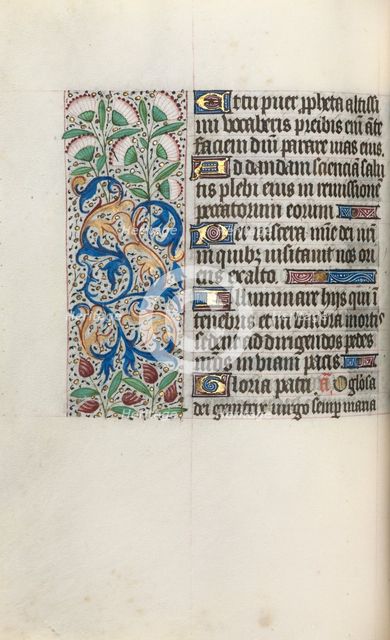 Et tu puer ppheta altissi
mi vocaberis preibis em ante
faciem dni parare vias eius.
Ad dandam scienciā salu
tis plebi eius in remissione
peccatorum eorum
Per viscera mie dei nri
in quibz visitavit nos ori
ens ex alto
Illuminare hijs qui ī
tenebris et in umbra mortis
sedent ad dirigendos pedes
nros in viam pacis
Gloria patri a O gloīsa
dei genitrix virgo semp maria
Heritage Images